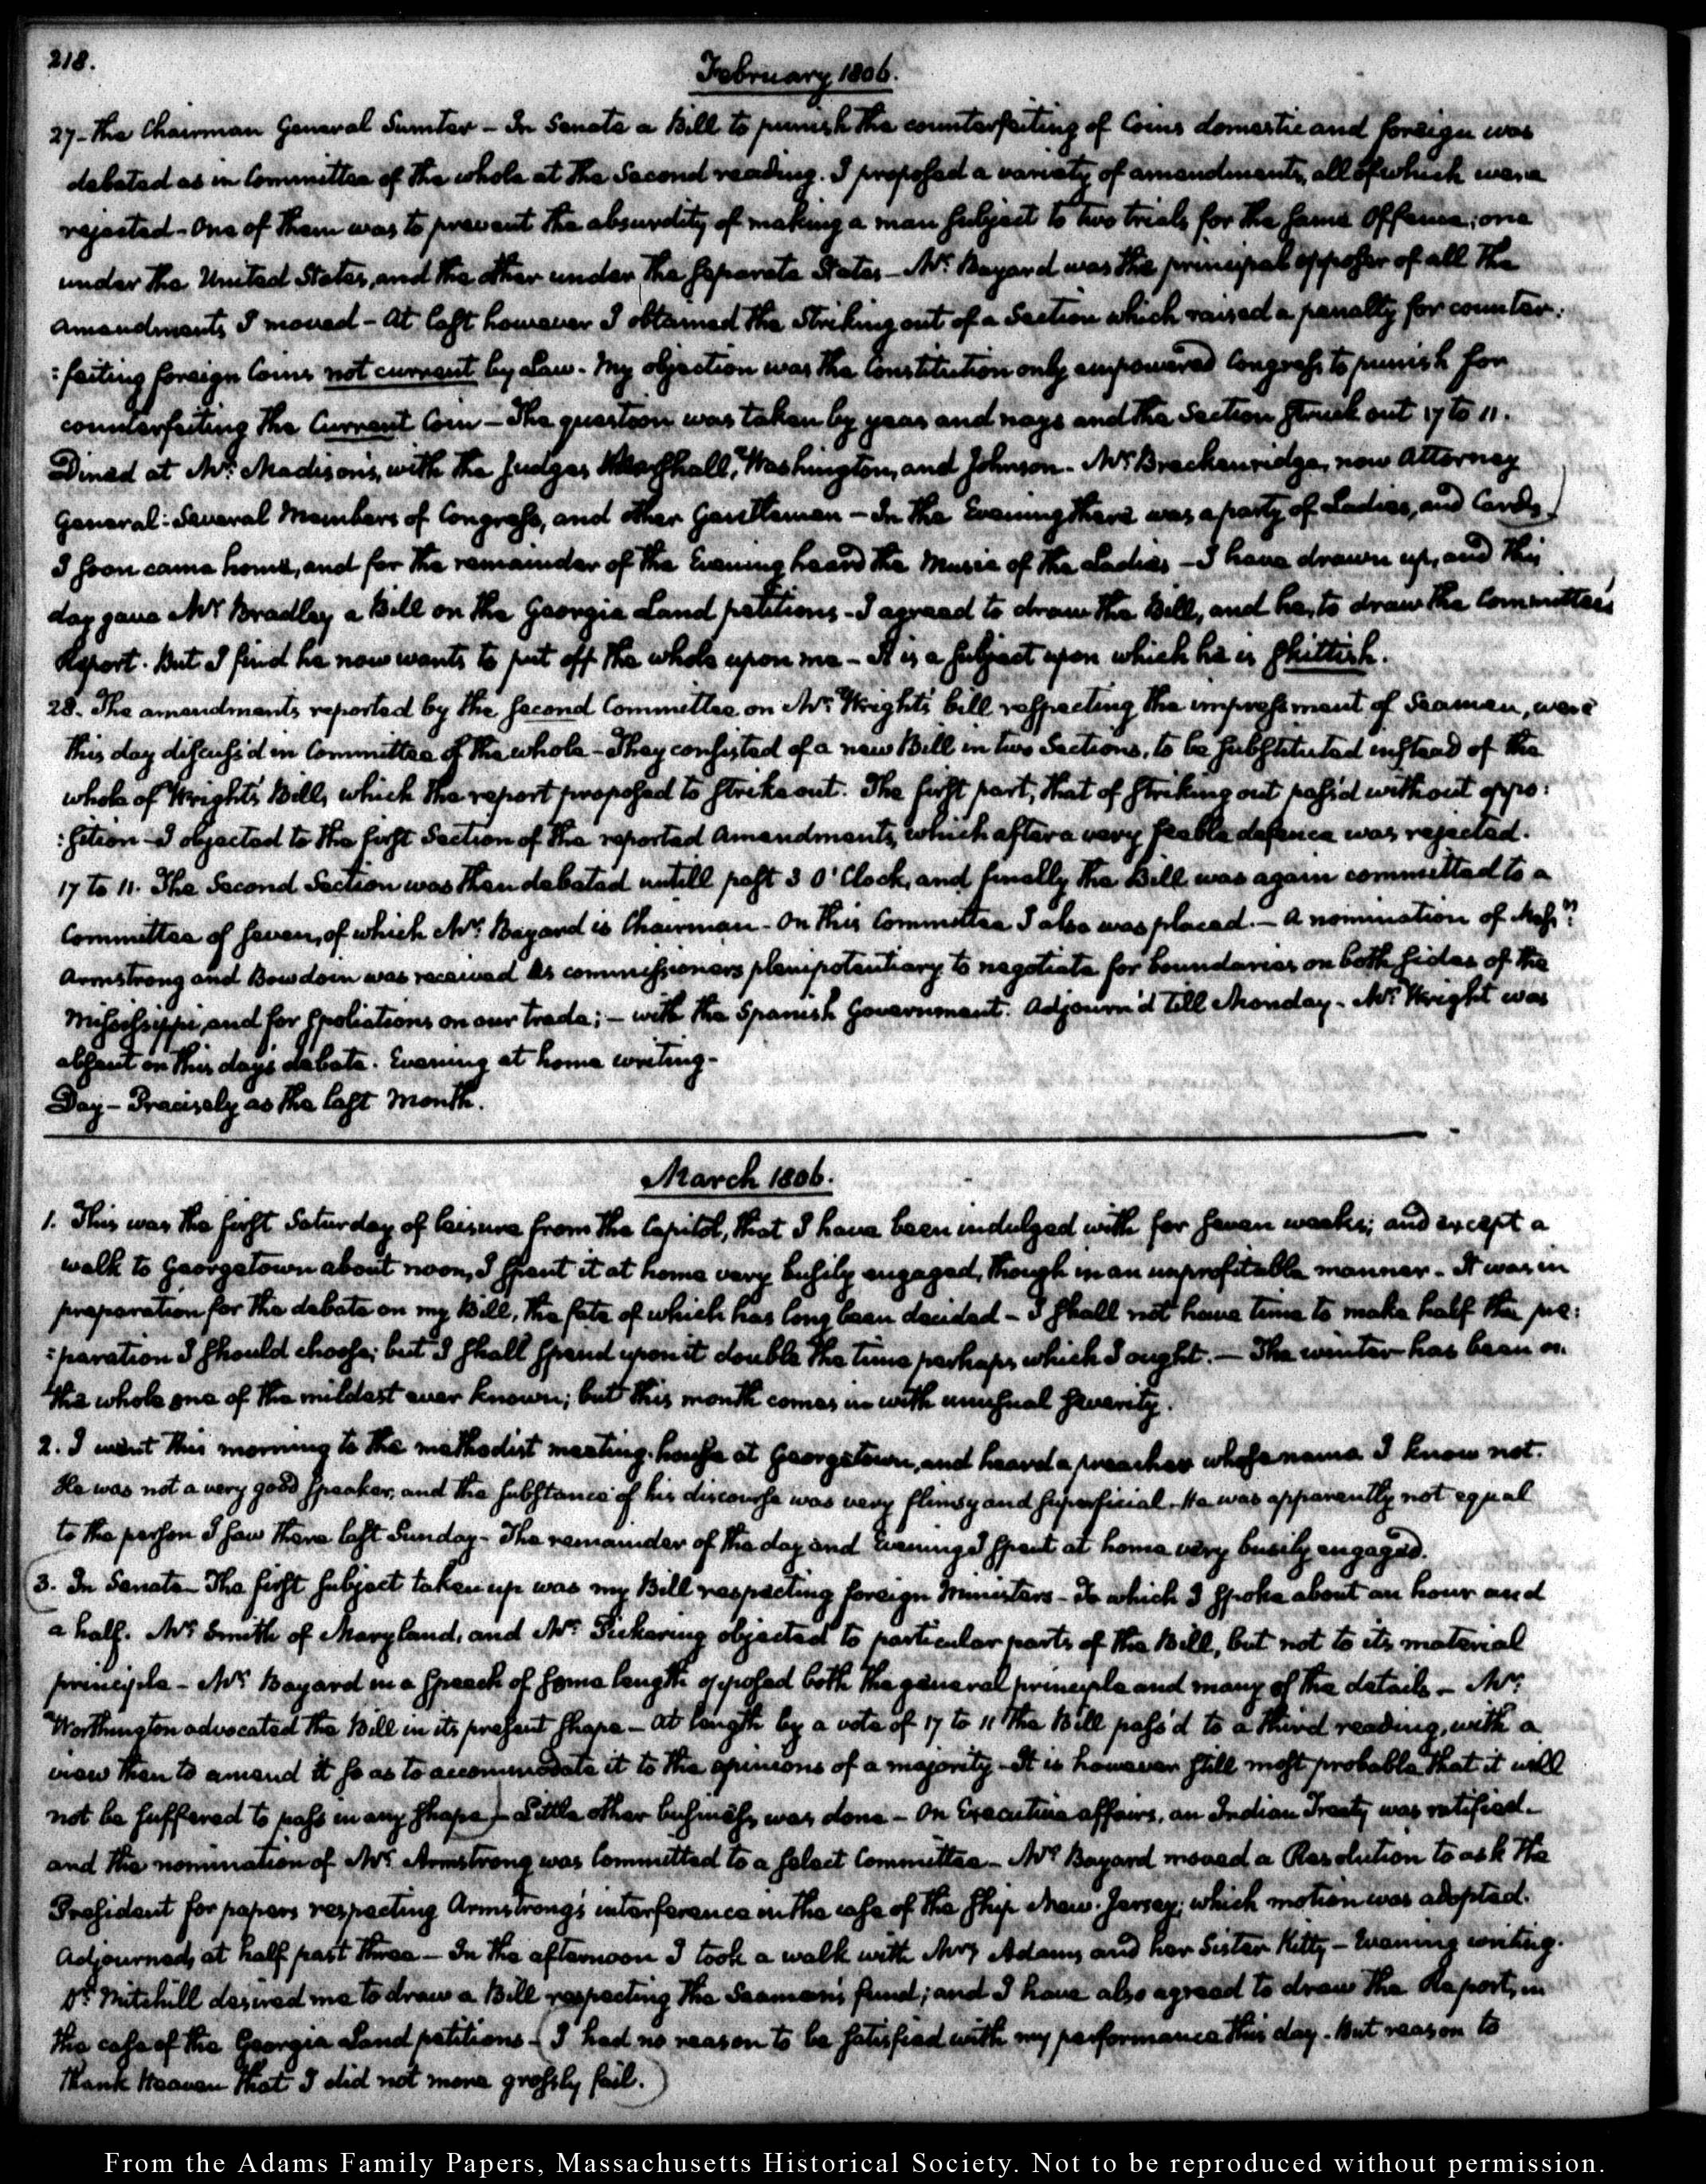 218.
February 1806.
27- The Chairman General Sumter - In Senate a Bill to punish the counterfeiting of Coins domestic and foreign was
debated as in Committee of the whole at the Second reading. I proposed a variety of amendments, all of which were
rejected - One of them was to prevent the absurdity of making a man subject to two trials for the same Offence; one
under the United States, and the other under the separate States - Mr. Bayard was the principal opposer of all the
amendments I moved - At last however I obtained the striking out of a Section which raised a penalty for counter:
:feiting foreign Coins not current by Law. My objection was the Constitution only empowered Congress to punish for
counterfeiting the Current Coin - The question was taken by yeas and nays and the Section struck out 17 to 11.
Dined at Mr. Madison's, with the Judges Marshall, Washington, and Johnson - Mr. Breckenridge, now Attorney
General: Several Members of Congress, and other Gentlemen - In the Evening there was a party of Ladies, and Cards.)
I soon came home, and for the remainder of the Evening heard the Music of the Ladies - I have drawn up, and this
day gave Mr. Bradley a Bill on the Georgia Land petitions - I agreed to draw the Bill, and he, to draw the Committee's
Report. But I find he now wants to put off the whole upon me - It is a subject upon which he is skittish.
28. The amendments reported by the second Committee on Mr. Wright's bill respecting the impressment of Seamen, were
this day discuss'd in Committee of the whole - They consisted of a new Bill in two Sections, to be substituted instead of the
whole of Wright's Bill, which the report proposed to strike out. The first part, that of striking out pass'd without oppo:
:sition - I objected to the first Section of the reported Amendments, which after a very feeble defence was rejected.
17 to 11. The Second Section was then debated untill past 3 O'Clock, and finally the Bill was again committed to a
Committee of seven, of which Mr. Bayard is Chairman - On this Committee I also was placed. - A nomination of Messrs.
Armstrong and Bowdoin was received as commissioners plenipotentiary to negotiate for boundaries on both sides of the
Mississippi, and for spoliations on our trade; - with the Spanish Government. Adjourn'd till Monday - Mr. Wright was
absent on this day's debate. Evening at home writing -
Day - Precisely as the last Month.
March 1806.
1. This was the first Saturday of leisure from the Capitol, that I have been indulged with for seven weeks; and except a
walk to Georgetown about noon, I spent it at home very busily engaged, though in an unprofitable manner - It was in
preparation for the debate on my Bill, the fate of which has long been decided - I shall not have time to make half the pre:
:paration I should choose; but I shall spend upon it double the time perhaps which I ought. - The winter has been on
the whole one of the mildest ever known; but this month comes in with unusual severity.
2. I went this morning to the methodist meeting-house at Georgetown, and heard a preacher whose name I know not.
He was not a very good speaker, and the substance of his discourse was very flimsy and superficial. He was apparently not equal
to the person I saw there last Sunday - The remainder of the day and Evening I spent at home very busily engaged.
(3. In Senate - The first subject taken up was my Bill respecting foreign Ministers - To which I spoke about an hour and
a half. Mr. Smith of Maryland, and Mr. Pickering objected to particular parts of the Bill, but not to its material
principle - Mr. Bayard in a speech of some length opposed both the general principle and many of the details - Mr.
Worthington advocated the Bill in its present shape - At length by a vote of 17 to 11 the Bill pass'd to a third reading, with a
view then to amend it so as to accommodate it to the opinions of a majority - It is however still most probable that it will
not be suffered to pass in any shape) - Little other business was done - On Executive affairs, an Indian Treaty was ratified -
and the nomination of Mr. Armstrong was Committed to a select Committee - Mr. Bayard moved a Resolution to ask the
President for papers respecting Armstrong's interference in the case of the ship New-Jersey; which motion was adopted.
Adjourned, at half past three - In the afternoon I took a walk with Mrs. Adams and her Sister Kitty - Evening writing.
Dr. Mitchill desired me to draw a Bill respecting the Seamen's fund; and I have also agreed to draw the Report, in
the case of the Georgia Land petitions - (I had no reason to be satisfied with my performance this day. But reason to
thank Heaven that I did not more grossly fail.)
From the Adams Family Papers, Massachusetts Historical Society. Not to be reproduced without permission.